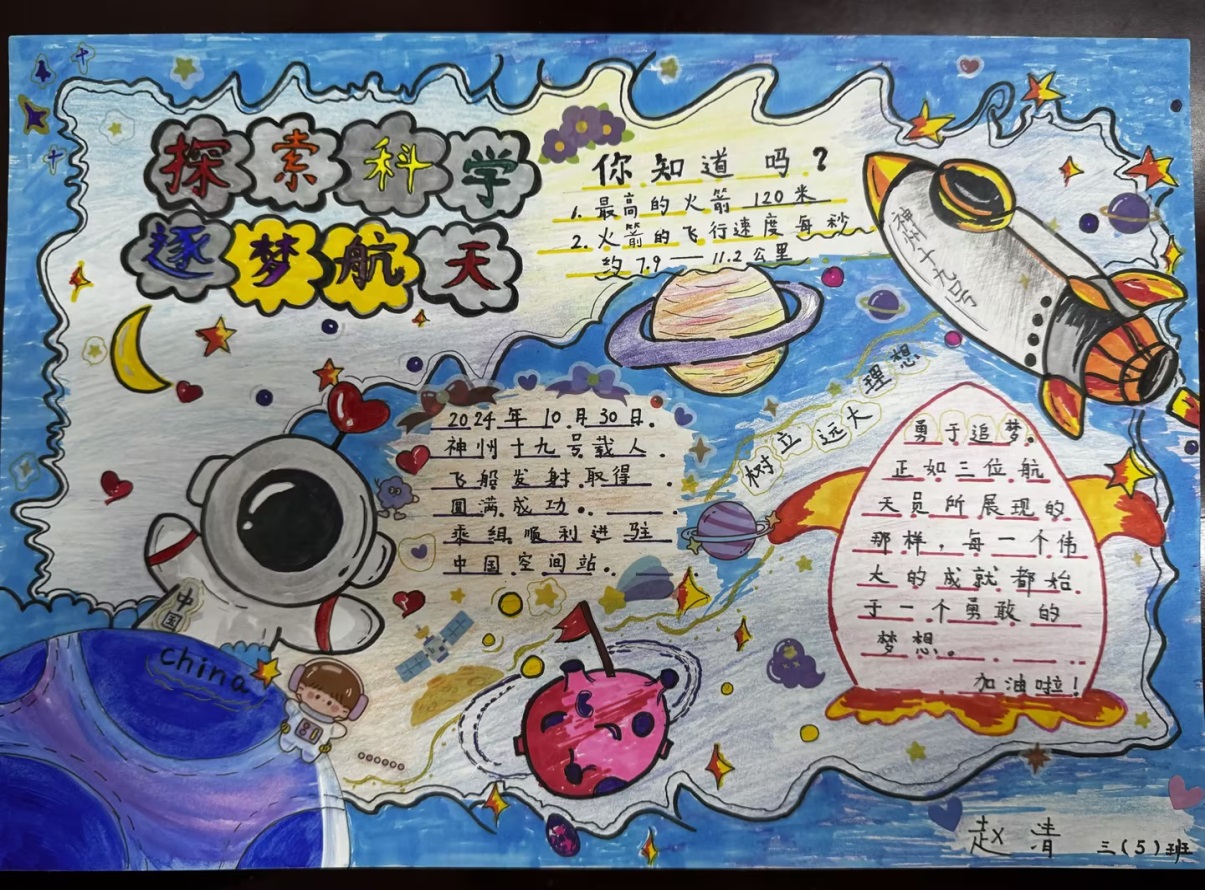 探索科学
逐梦航天
你知道吗？
1. 最高的火箭120米
2. 火箭的飞行速度每秒
约7.9——11.2公里
神州十九号
树立远大理想
2024年10月30日.
神州十九号载人.
飞船发射取得
圆满成功。
乘组顺利进驻
中国空间站。
勇于追梦。
正如三位航
天员所展现的
那样，每一个伟
大的成就都始
于一个勇敢的
梦想。
加油啦！
中国
china
赵清
三（5）班